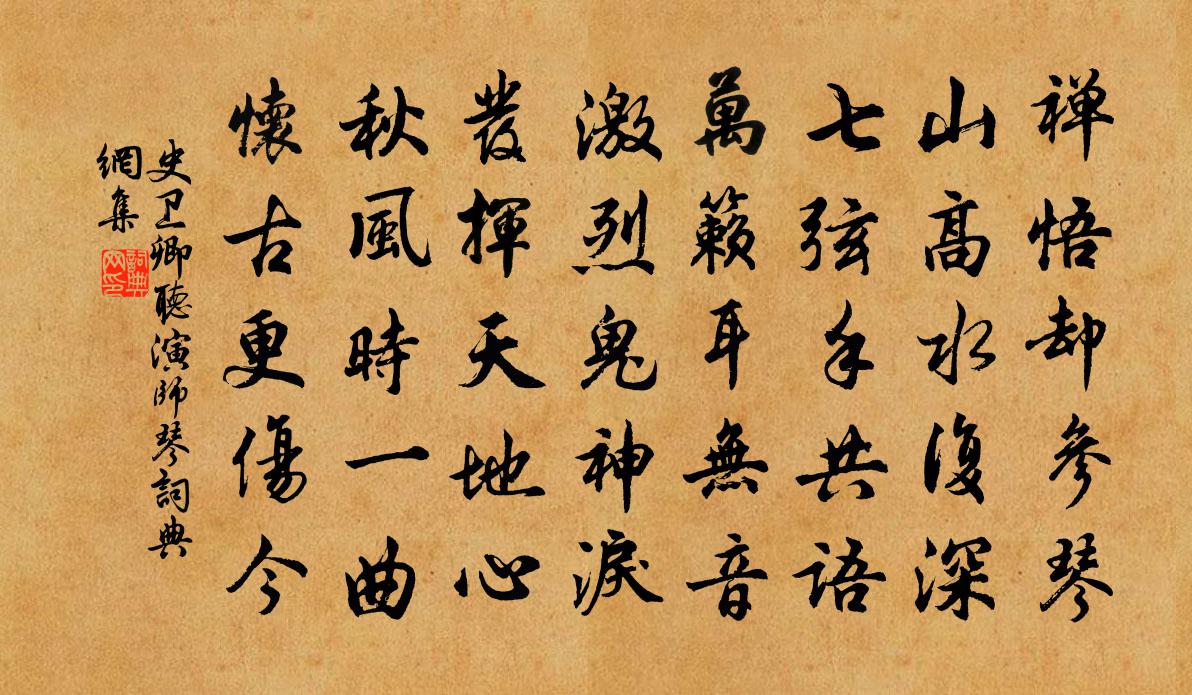 禅悟却参琴
山高水復深
七弦手共語
萬籟耳無音
激烈鬼神淚
發揮天地心
秋風時一曲
懷古更傷今
史卫卿聽演師琴詞典
網集
詞典
网印